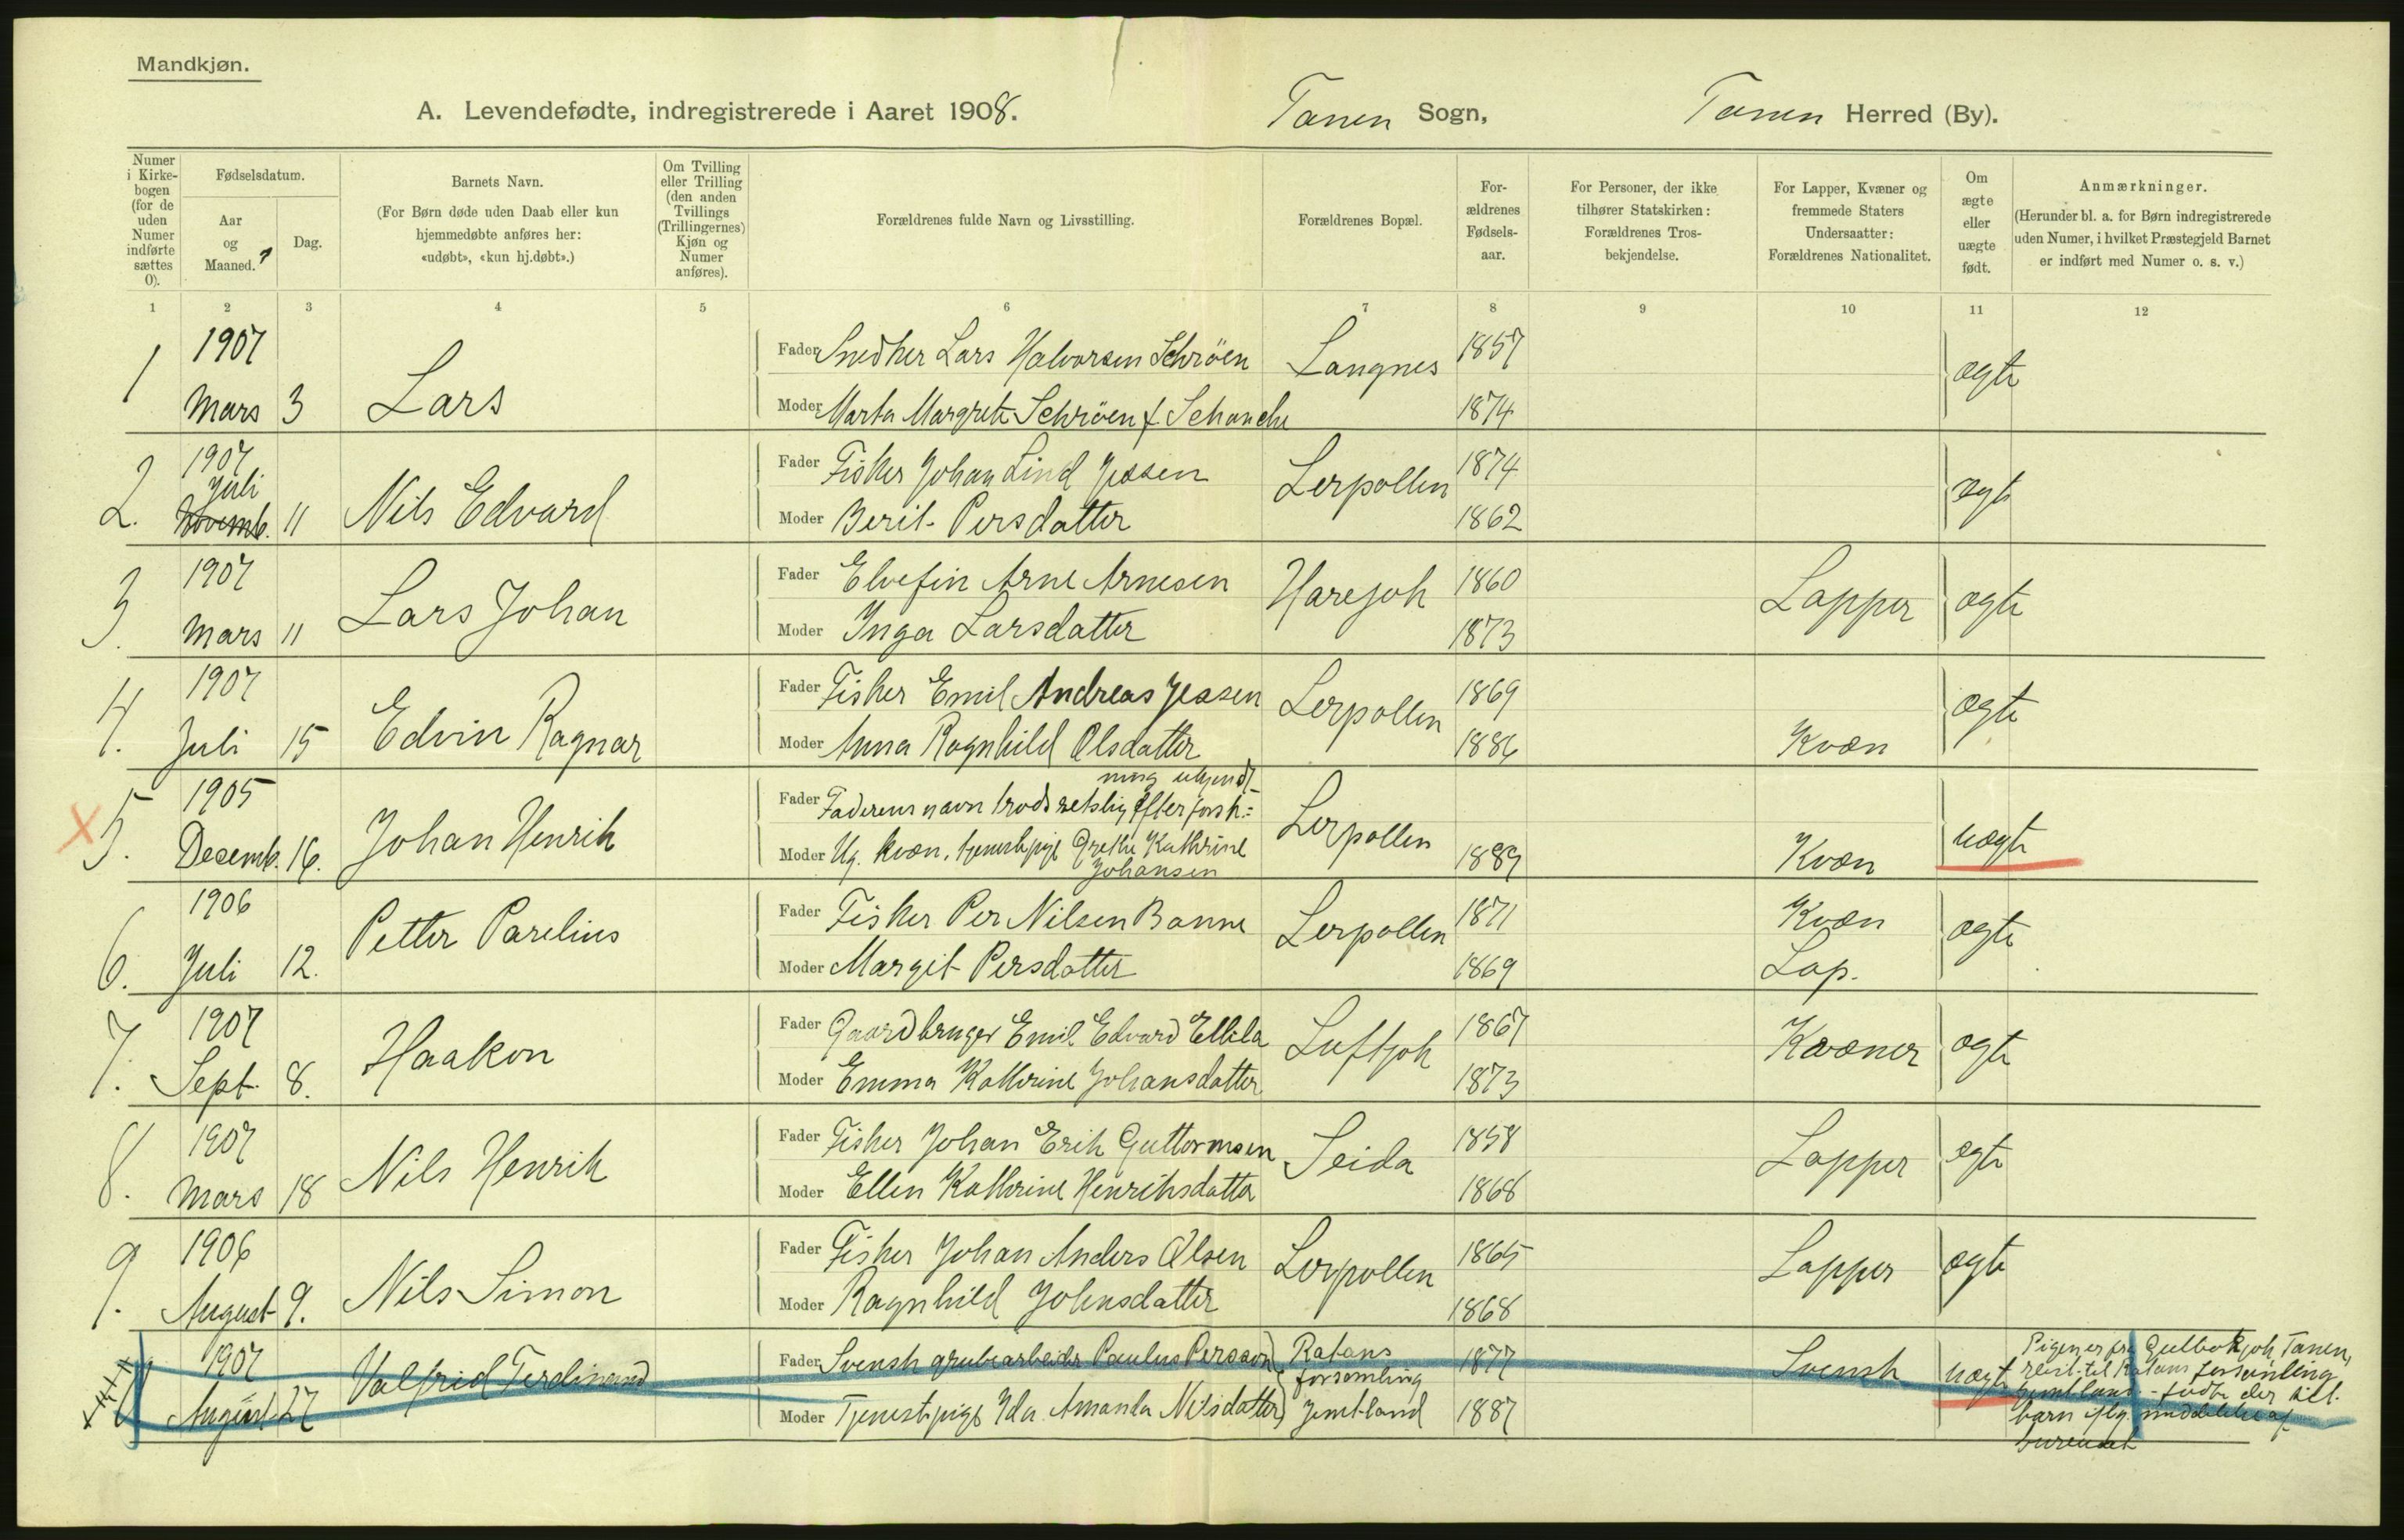 Mandkjøn.
A. Levendefødte, indregistrerede i Aaret 1908. Tanen Sogn, Tanen Herred (By).
Numer i Kirkebogen (for de uden Numer indførte sættes 0).
Fødselsdatum.
Aar og Maaned.
Dag.
Barnets Navn.
(For Børn døde uden Daab eller kun hjemmedøbte anføres her: «udøbt», «kun hj.døbt».)
Om Tvilling eller Trilling (den anden Tvillings (Trillingernes) Kjøn og Numer anføres).
Forældrenes fulde Navn og Livsstilling.
Forældrenes Bopæl.
For-ældrenes Fødsels-aar.
For Personer, der ikke tilhører Statskirken: Forældrenes Tros-bekjendelse.
For Lapper, Kvæner og fremmede Staters Undersaatter: Forældrenes Nationalitet.
Om ægte eller uægte født.
Anmærkninger.
(Herunder bl. a. for Børn indregistrerede uden Numer, i hvilket Præstegjeld Barnet er indført med Numer o. s. v.)
1 2 3 4 5 6 7 8 9 10 11 12
1907 Fader Snedker Lars Halvorsen Schrøen Langnes 1857
1 Mars 3 Lars Moder Marta Margrete Schrøen f Schanche 1874 ægte
1907 Juli Fader Fisker Johan Lind Jessen Lerpollen 1874
2. Novemb. 11 Nils Edvard Moder Berit Persdatter 1862 ægte
1907 Fader Elvefin Arne Arnesen Harejok 1860 Lapper ægte
3. Mars 11 Lars Johan Moder Inga Larsdatter 1873
1907 Fader Fisker Emil Andreas Jessen Lerpollen 1869 ægte
4. Juli 15 Edvin Ragnar Moder Anna Ragnhild Olsdatter 1886 Kvæn
ning ukjendt
X 1905 Fader Faderens navn trods retslig efterforsk= Lerpollen
5. Decemb. 16. Johan Henrik Moder Ug. kvæn, tjenestepige Grethe Kathrine 1889 Kvæn uægte
Johansen
1906 Fader Fisker Per Nilsen Banne Lerpollen 1871 Kvæn ægte
6. Juli 12. Petter Parelius Moder Margit Persdatter 1869 Lap.
1907 Fader Gaardbruger Emil Edvard Ellila Luftjok 1867 Kvæner ægte
7. Sept. 8. Haakon Moder Emma Kathrine Johansdatter 1873
1907 Fader Fisker Johan Erik Guttormsen Seida 1858 Lapper ægte
8. Mars 18 Nils Henrik Moder Ellen Kathrine Henriksdatter 1868
1906 Fader Fisker Johan Anders Olsen Lerpollen 1865 Lapper ægte
9. August 9. Nils Simon Moder Ragnhild Johnsdatter 1868
1907 Valfrid Ferdinand Fader Svensk grubearbeider Paulus Persson Ratans 1877 Svensk uægte Pigen er fra Tanen,
forsamling reist til Ratans forsamling
August 27 Moder Tjenestepige Ida Amanda Nilsdatter Jemtland 1887 Jemtland - fødte der sit
barn iflg. meddelelse af
bureauet